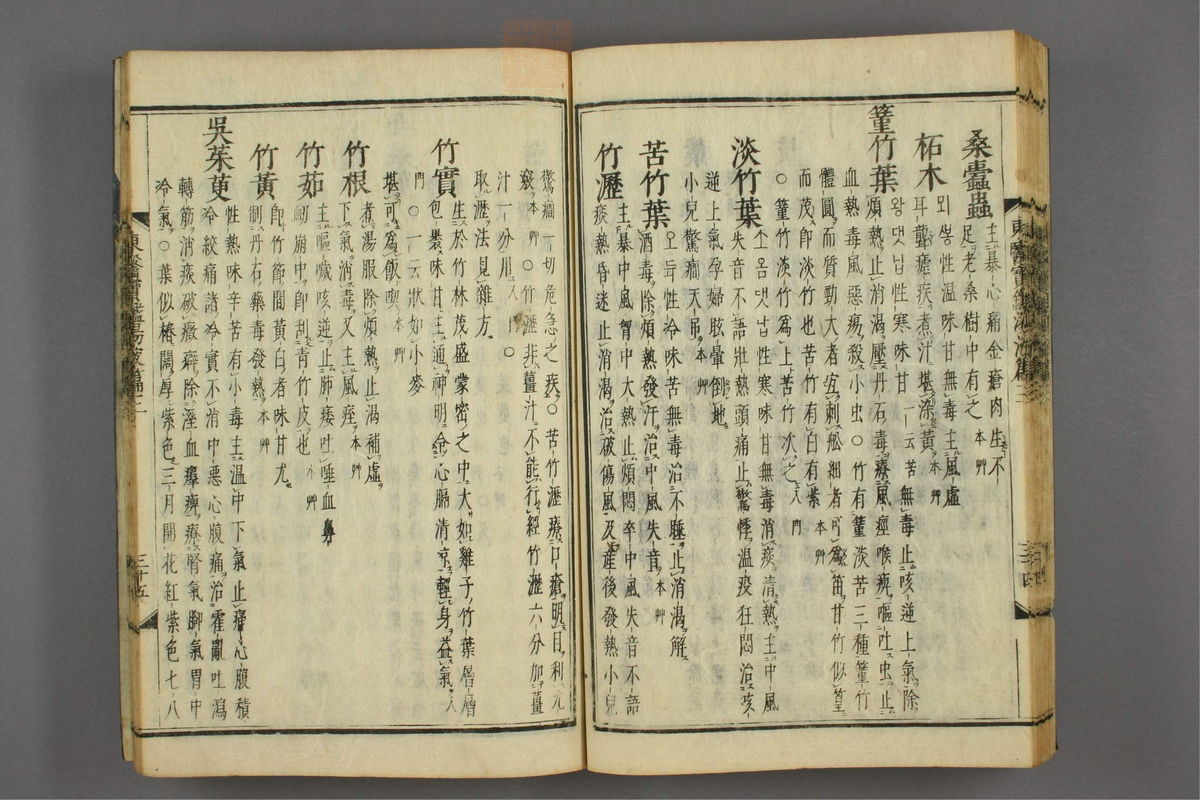 桑蠹蟲 主暴心痛金瘡肉生不
足老桑樹中有之 本艸
柘木 耳聾瘧疾煮汁堪染黃 本艸
뫼ᄲᅩᆼ性溫味甘無毒主風虛
篁竹葉 왕댓닙性寒味甘 一云苦 無毒止咳逆上氣除
煩熱止消渴壓丹石毒療風痙喉痺嘔吐虫止
血熱毒風惡瘍殺小虫○竹有篁淡苦三種篁竹
體圓而質勁大者宜刺舩細者可爲笛甘竹似篁
而茂卽淡竹也苦竹有白有紫 本艸
○篁竹淡竹爲上苦竹次之 入門
淡竹葉 소옴댓닙性寒味甘無毒消痰淸熱主中風
失音不語壯熱頭痛止驚悸溫疫狂悶治咳
逆上氣孕婦眩暈倒地
小兒驚癎天吊 本艸
苦竹葉 오듁性冷味苦無毒治不睡止消渴解
酒毒除煩熱發汗治中風失音 本艸
竹瀝 主暴中風胷中大熱止煩悶卒中風失音不語
痰熱昏迷止消渴治破傷風及產後發熱小兒
驚癎一切危急之疾○苦竹瀝療口瘡明目利九
竅 本艸 ○竹瀝非薑汁不能行經竹瀝六分加薑
汁一分用 入門 ○
取瀝法見雜方
竹實 生於竹林茂盛蒙密之中大如雞子竹葉層層
包褁味甘主通神明令心膈淸凉輕身益氣 入
門 ○一云狀如小麥
堪可爲飯喫 本艸
竹根 煮湯服除煩熱止渴補虛
下氣消毒又主風痙 本艸
竹茹 主嘔噦咳逆止肺痿吐唾血鼻
衄崩中卽刮靑竹皮也 本艸
竹黃 卽竹節間黃白者味甘尤
制丹石藥毒發熱 本艸
吳茱萸 性熱味辛苦有小毒主溫中下氣止痛心腹積
冷絞痛諸冷實不消中惡心腹痛治霍亂吐瀉
轉筋消痰破癥癖除溼血𤸷痺療腎氣脚氣胃中
冷氣○葉似椿闊厚紫色三月開花紅紫色七八
三十四
三十五